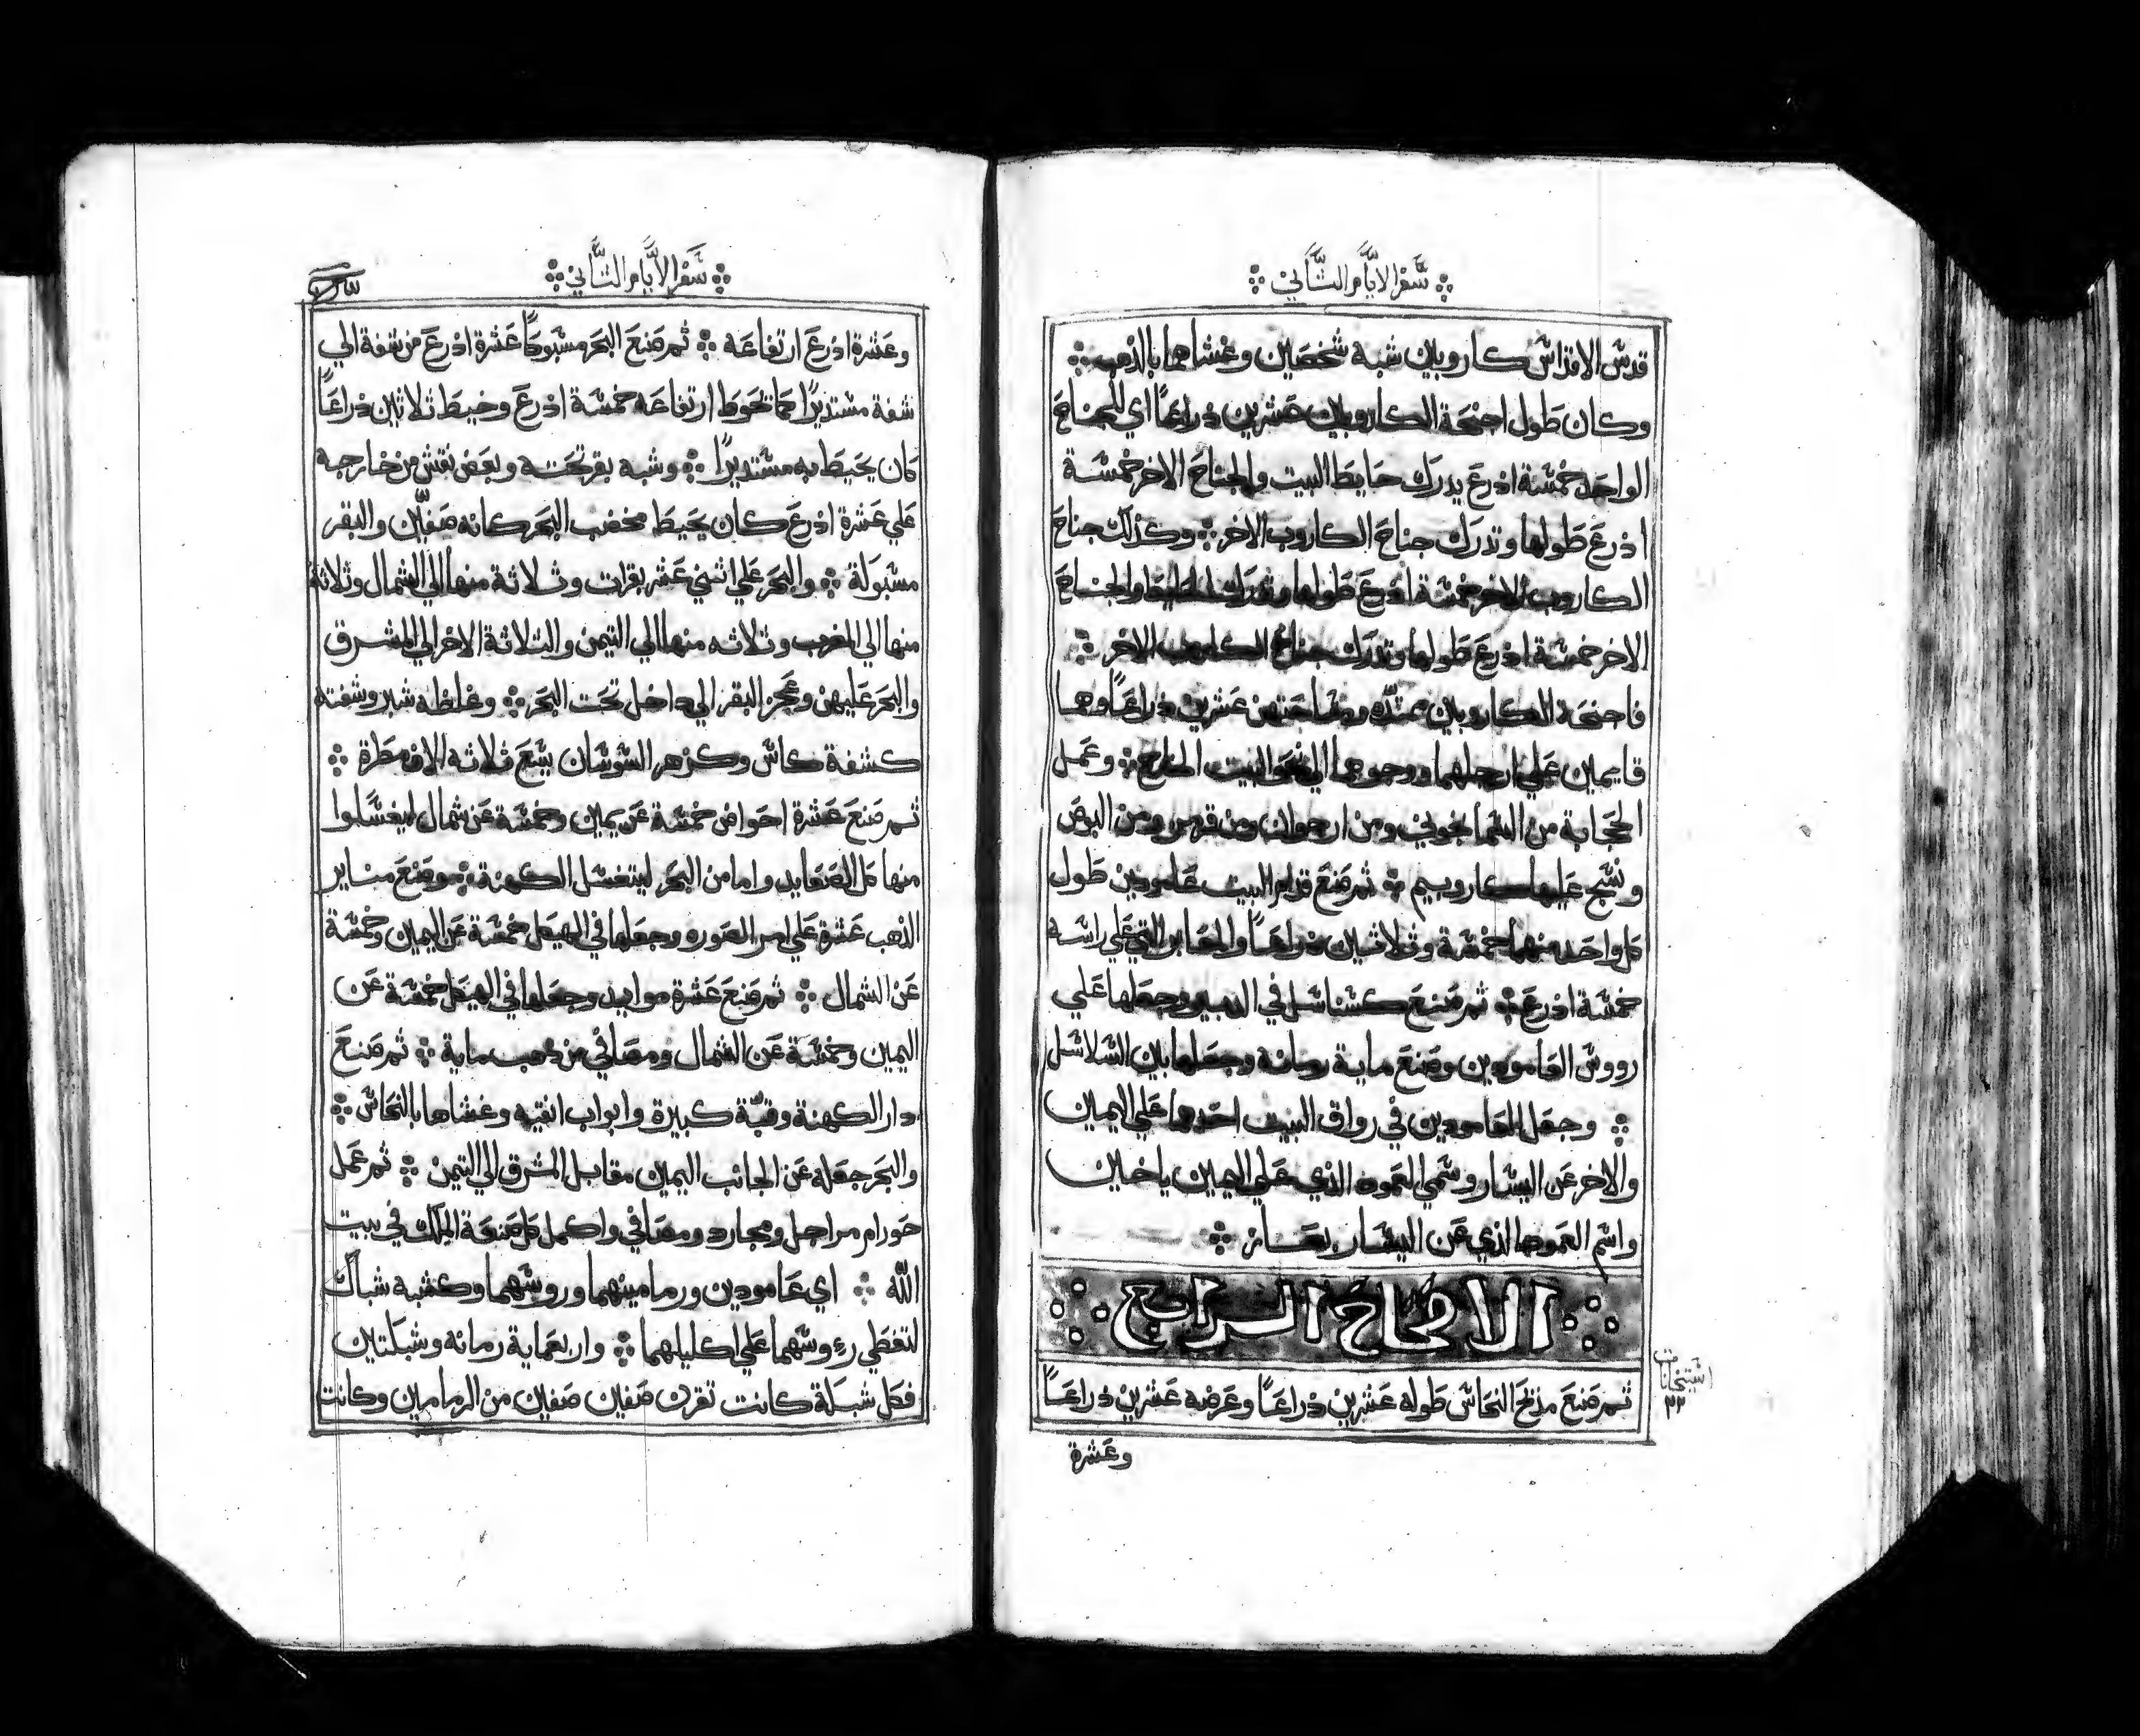 سفر الايام الثاني
قدس الاقداس كاروبين شبه شخصين وغشاهما بالذهب
وكان طول اجنحة الكاروبين عشرين ذراعًا اي للجناح
الواحد خمسة اذرع يدرك حايط البيت والجناح الاخر خمسة
اذرع طولها وتدرك جناح الكاروب الاخر وكذلك جناح
الكاروب الاخر خمسة اذرع طولها وتدرك الحايط والجناح
الاخر خمسة اذرع طولها وتدرك جناح الكاروب الاخر
فاجنحة الكاروبين ممتده عشرين ذراعًا وهما
قايمين علي ارجلهما ووجوههما الي نحو البيت الخارج وعمل
الحجابة من السمانجوني ومن ارجوان ومن قرمز ومن البوص
ونسج عليها كاروبيم ثم صنع قدام البيت عامودين طول
كل واحد منهما خمسة وثلاثين ذراعًا والتي علي راسه
خمسة اذرع ثم صنع كسناسل في الدبير وجعلها علي
رووس العامودين وصنع ماية رمانة وجعلها بين السلاسل
وجعل العامودين في رواق البيت احدها علي اليمين
والاخر عن اليسار وسمي العمود الذي علي اليمين ياخين
واسم العمود الذي عن اليسار بعاز
الاصحاح الرابع
ثم صنع مذبح النحاس طوله عشرين ذراعًا وعرضه عشرين ذراعًا
استيخانات
٣٢
وعشرة
سفر الايام الثاني
وعشرة اذرع ارتفاعه ثم صنع البحر مسبوكًا عشرة اذرع من شفة الي
شفة مستديرًا كما تحوط ارتفاعه خمسة اذرع وخيط ثلاثين ذراعًا
كان يحيط به مستديرًا وشبه بقر تحته وبعض نقش من خارجه
علي عشرة اذرع كان يحيط مخضب البحر كانه صفين والبقر
مسبوكة والبحر علي اثني عشر بقرات وثلاثة منها الي الشمال وثلاثة
منها الي المغرب وثلاثه منها الي التيمن والثلاثة الاخر الي المشرق
والبحر عليهن وعجز البقر الي داخل تحت البحر وغلظه شبر وشفته
كشفة كاس وكزهر السوسان يسع ثلاثه الاف مطرة
ثم صنع عشرة احواض خمسة عن يمين وخمسة عن شمال ليغسلوا
منها كل الصعايد واما من البحر ليتغسل الكهنة وصنع مناير
الذهب عشرة علي امر الصوره وجعلها في الهيكل خمسة عن اليمين وخمسة
عن الشمال ثم صنع عشرة موايد وجعلها في الهيكل خمسة عن
اليمين وخمسة عن الشمال ومصافي من ذهب ماية ثم صنع
دار الكهنة وقبة كبيرة وابواب انقيه وغشاها بالنحاس
والبحر جعله عن الجانب اليمين مقابل الشرق الي التيمن ثم عمل
حورام مراجل ومجارد ومصافي واكمل كل صنعة الملك في بيت
الله اي عامودين ورمامينهما وروسهما وكشبه شباك
لتغطي رووسهما علي اكليلهما واربعماية رمانه وشبكتين
فكل شبكة كانت تقرن صفين صفين من الرمامين وكانت